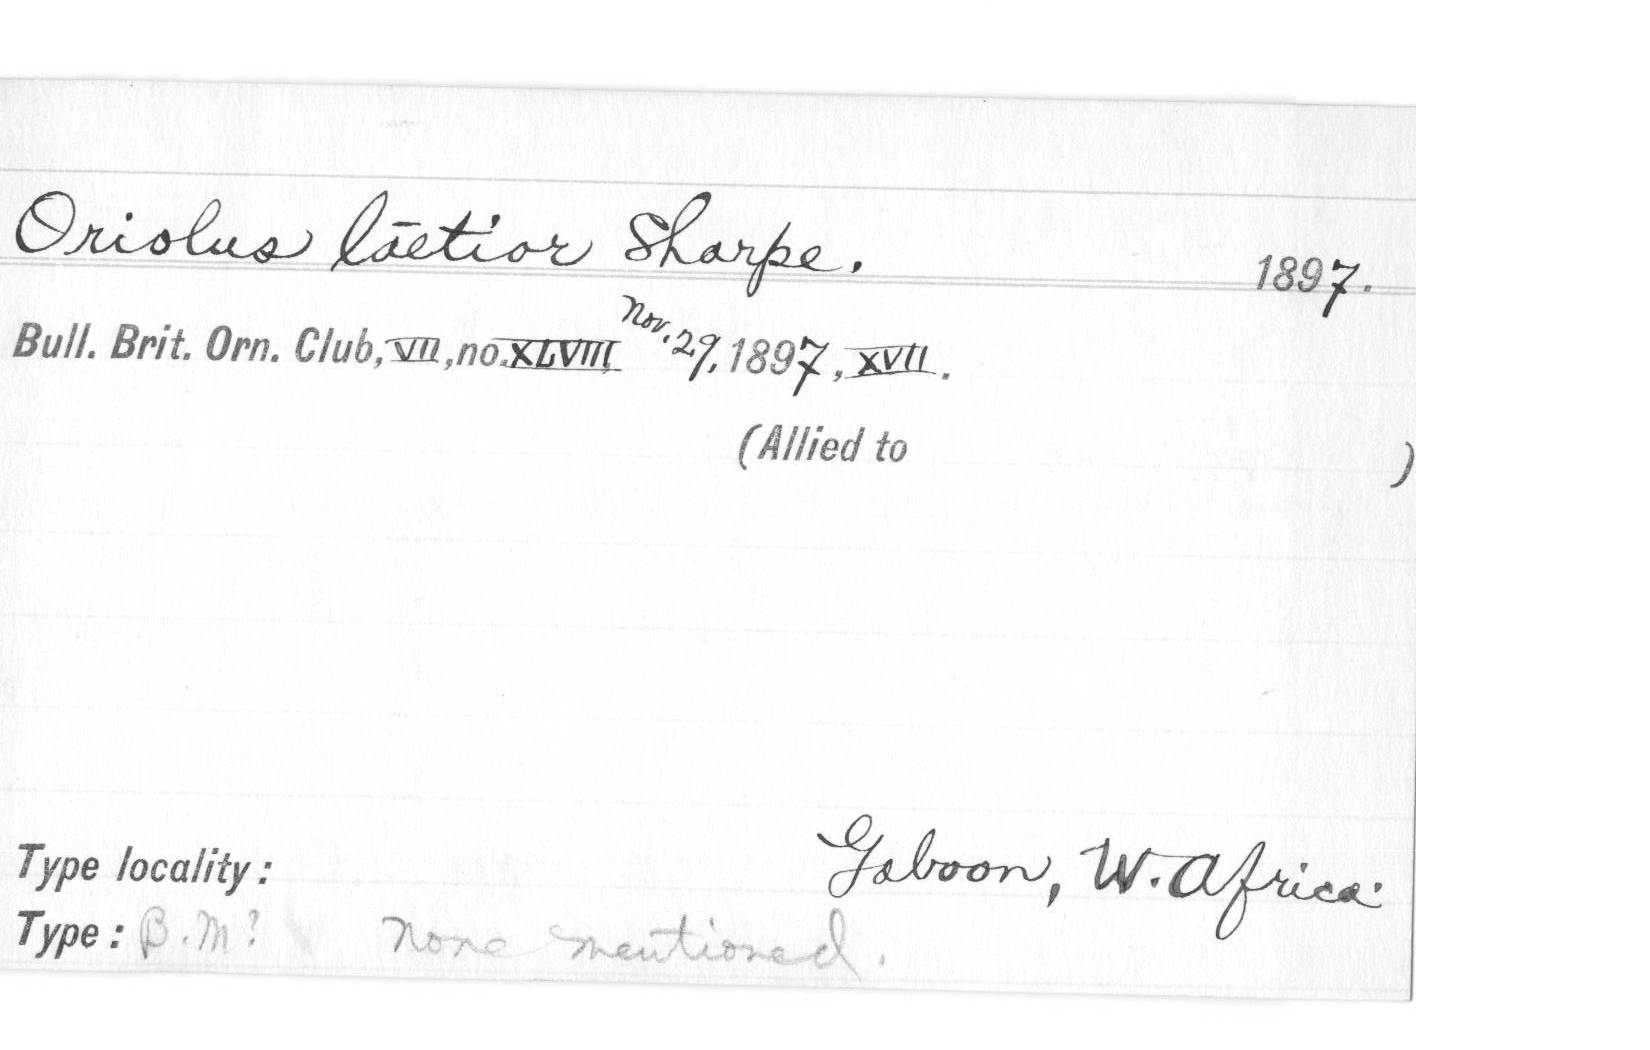 Oriolus laetior Sharpe. 1897.
Bull. Brit. Orn. Club, VII, no. XLVIII, Nov. 29, 1897, XVII.
(Allied to )
Type locality: Gaboon, W. Africa.
Type: B.M? None mentioned.